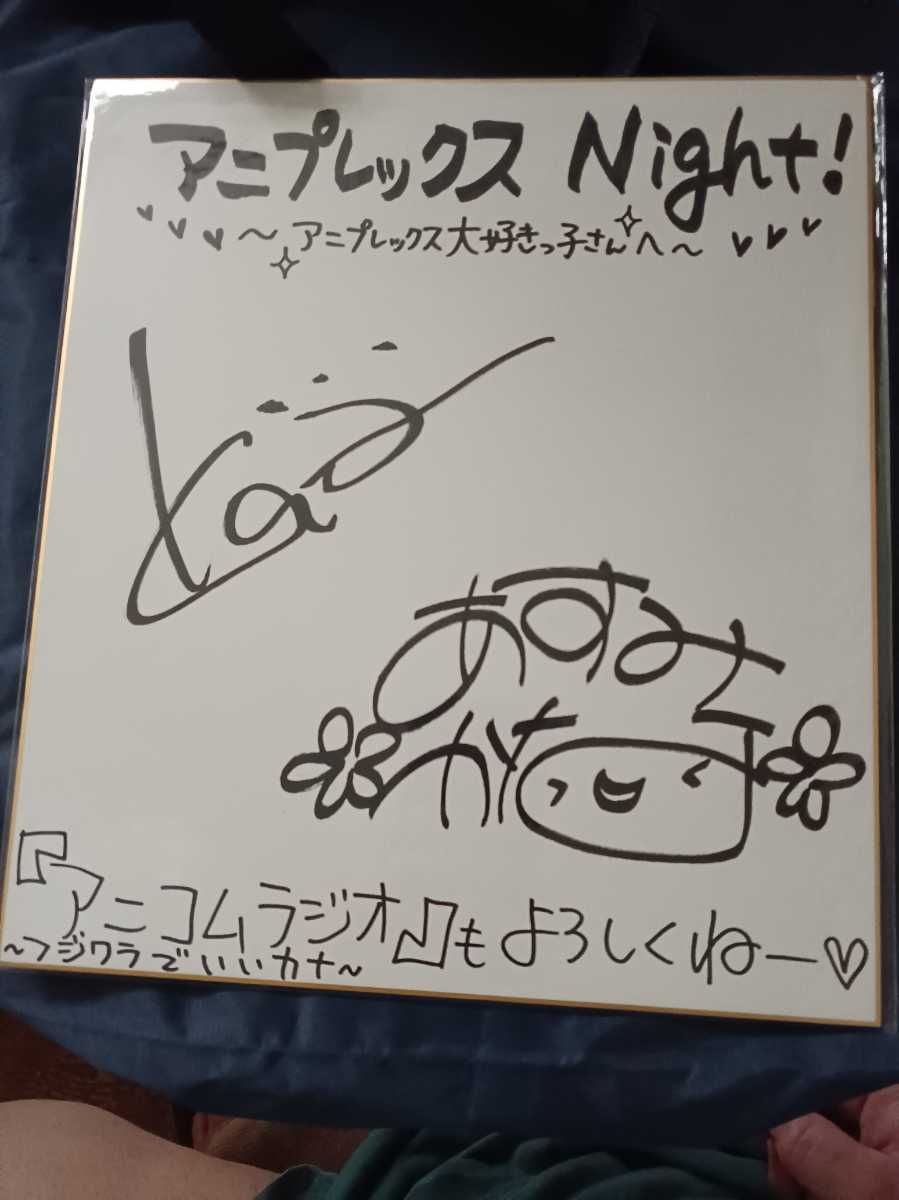 アニプレックス Night!
～アニプレックス大好きっ子さんへ～
あすみ
かな
『アニコムラジオ』もよろしくねー♡
～フジワラでいいカナ～